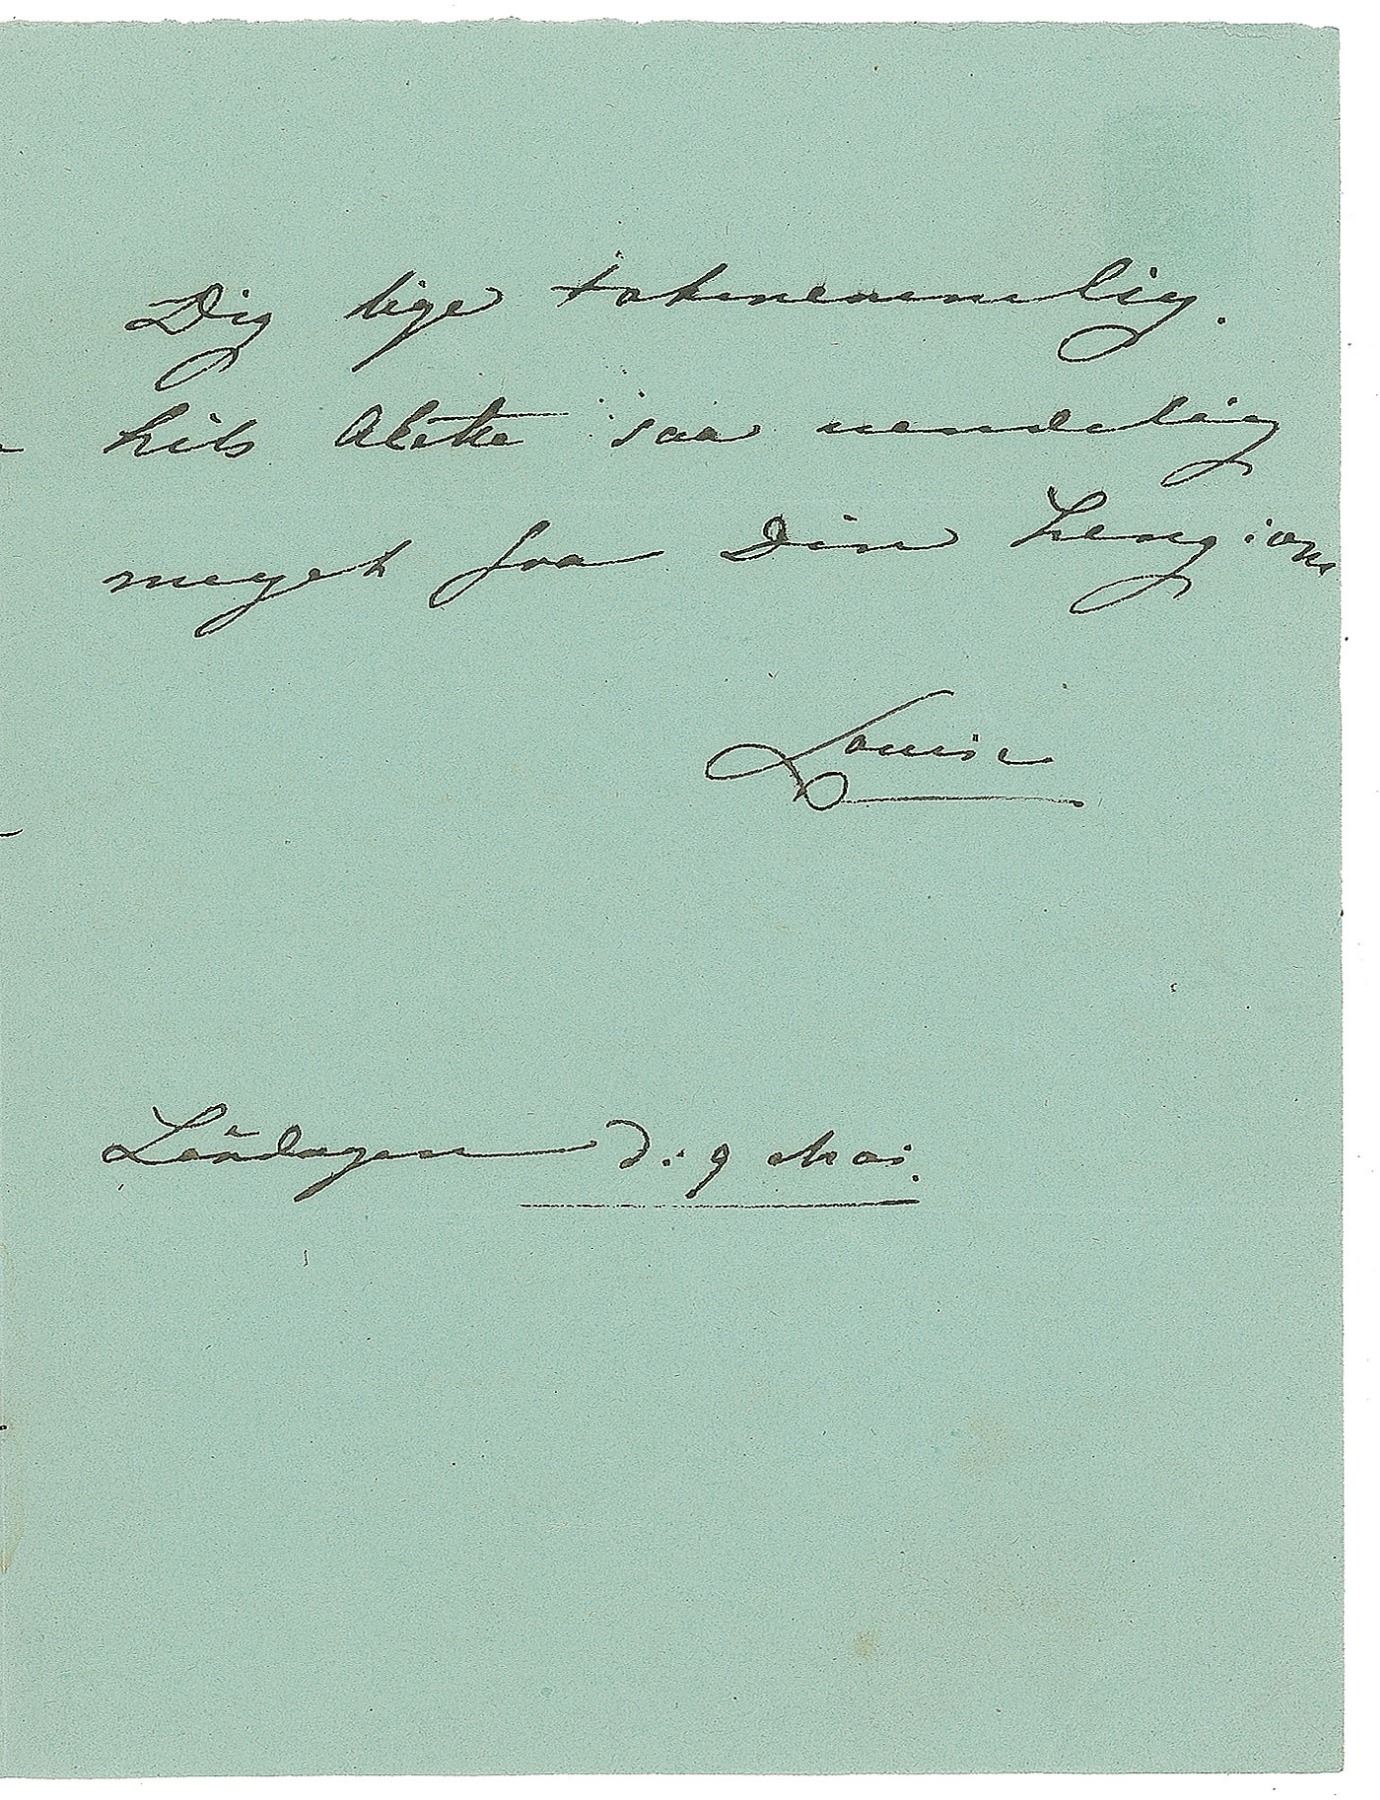 Dig lige taknemmelig.
hils Alette saa uendelig
meget fra Din heng: om
Louise
Löndagen d: 9 Mai.